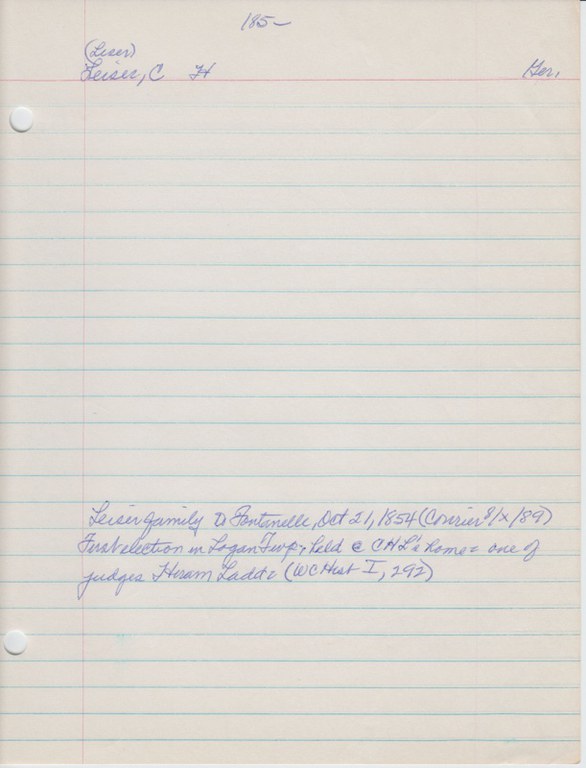 185-
(Liser)
Leiser, C H Ger.
Leiser family to Fontenelle, Oct 21, 1854 (Courier 8/x/89)
First election in Logan Twp. held @ CHL's home = one of
judges Hiram Ladd = (WCHist I, 292)